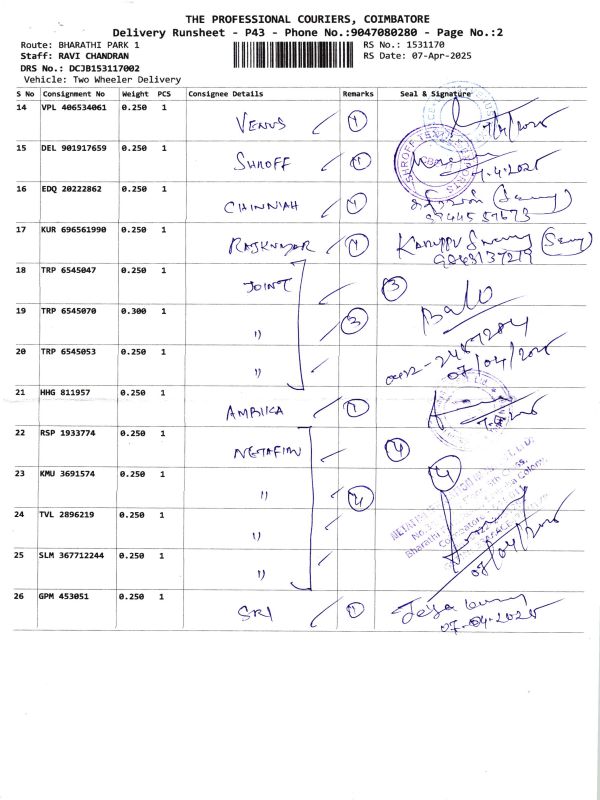 THE PROFESSIONAL COURIERS, COIMBATORE
Delivery Runsheet - P43 - Phone No.:9047080280 - Page No.:2
Route: BHARATHI PARK 1
RS No.: 1531170
Staff: RAVI CHANDRAN
RS Date: 07-Apr-2025
DRS No.: DCJB153117002
Vehicle: Two Wheeler Delivery
S No Consignment No Weight PCS Consignee Details Remarks Seal & Signature
14 VPL 406534061 0.250 1 VENUS 1
15 DEL 901917659 0.250 1 SHROFF 1
16 EDQ 20222862 0.250 1 CHINNIAH 1
9344557673
17 KUR 696561990 0.250 1 RAJKUMAR 1 Karuppu Swamy
18 TRP 6545047 0.250 1 JOINT 3
Balu
19 TRP 6545070 0.300 1 " 3
20 TRP 6545053 0.250 1 "
07/04/2025
21 HHG 811957 0.250 1 AMBIKA 1
22 RSP 1933774 0.250 1 NETAFIM 4
23 KMU 3691574 0.250 1 " 4
24 TVL 2896219 0.250 1 "
25 SLM 367712244 0.250 1 "
07/04/2025
26 GPM 453051 0.250 1 SRI 1
07-04-2025